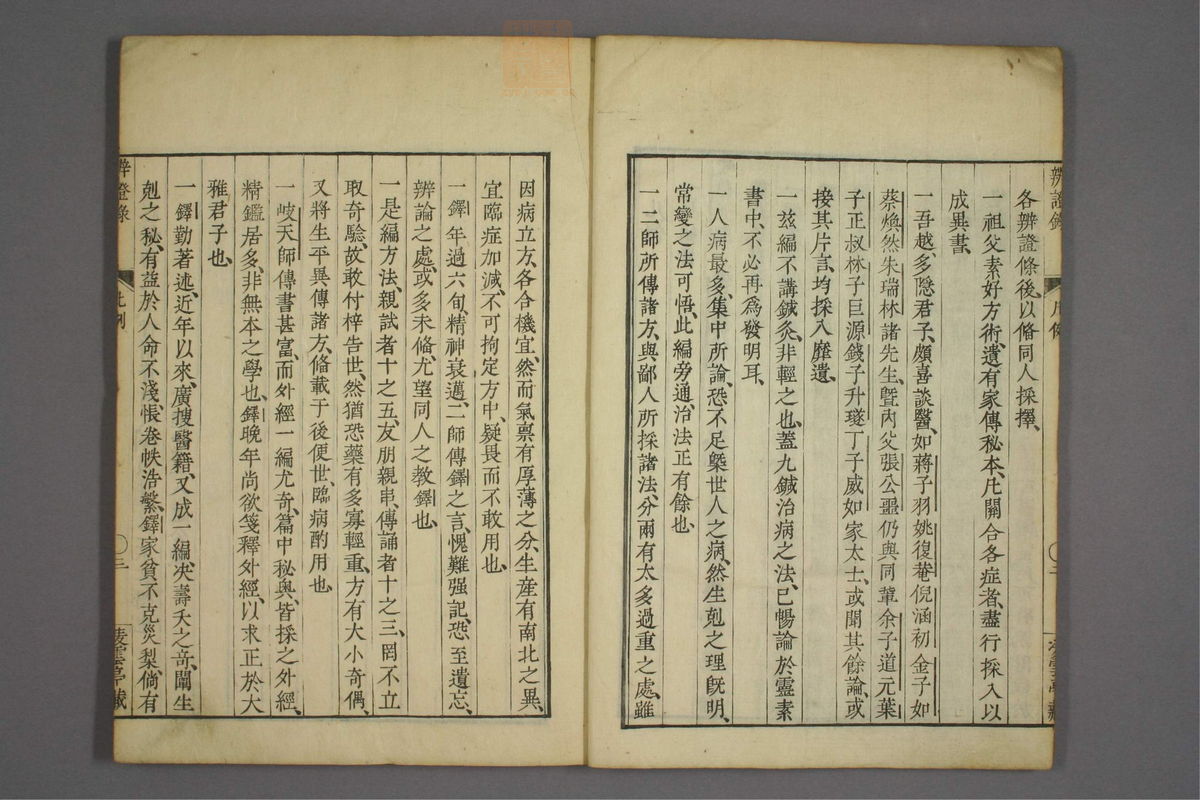 各辨證條後、以俻同人採擇、
一祖父素好方術、遺有家傳秘本、凢關合各症者、盡行採入以
成異書、
一吾越、多隱君子、頗喜談醫、如蔣子羽姚復菴倪涵初金子如
蔡煥然朱瑞林諸先生、曁内父張公噩仍與同輩余子道元葉
子正叔林子巨源錢子升璲丁子威如家太士、或聞其餘論、或
接其片言、均採入靡遺、
一玆編不講鍼灸、非輕之也、蓋九鍼治病之法、已暢論於靈素
書中、不必再爲發明耳、
一人病最多、集中所論、恐不足槩世人之病、然生剋之理旣明、
常變之法可悟、此編旁通、治法正有餘也、
一二師所傳諸方、與鄙人所採諸法、分兩有太多過重之處、雖
因病立方、各合機宜、然而氣禀有厚薄之分、生産有南北之異、
宜臨症加減、不可拘定方中、疑畏而不敢用也、
一鐸年過六旬、精神衰邁、二師傳鐸之言、愧難强記、恐至遺忘、
辨論之處、或多未俻、尤望同人之教鐸也、
一是編方法、親試者十之五、友朋親串、傳誦者十之三、罔不立
取奇驗、故敢付梓告世、然猶恐藥有多寡輕重、方有大小奇偶、
又將生平異傳諸方、俻載于後、便世、臨病酌用也
一岐天師傳書甚富、而外經一編尤奇、篇中秘奥、皆採之外經、
精鑑居多、非無本之學也、鐸晚年尚欲箋釋外經、以求正於大
雅君子也、
一鐸勤著述、近年以來、廣搜醫籍、又成一編、決壽夭之竒、闡生
剋之秘、有益於人命不淺、悵卷帙浩繁、鐸家貧不克災梨、倘有
辨證錄
凢例
〇三